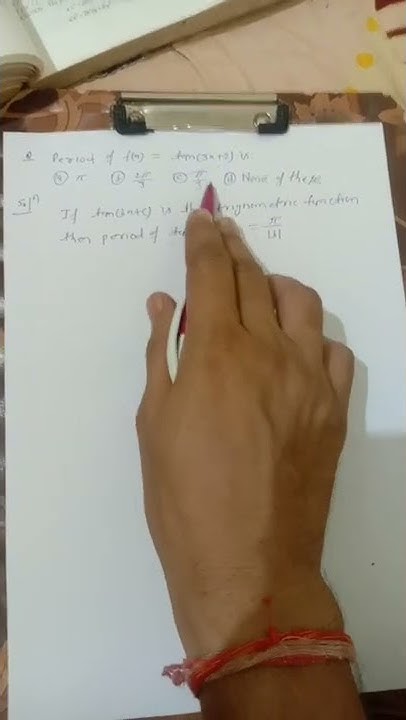 Q Period of f(x) = tan(3x+5) is
(a) π (b) 2π/3 (c) π/3 (d) None of these
Sol^n If tan(bx+c) is the trigonometric function
then period of = π/|b|